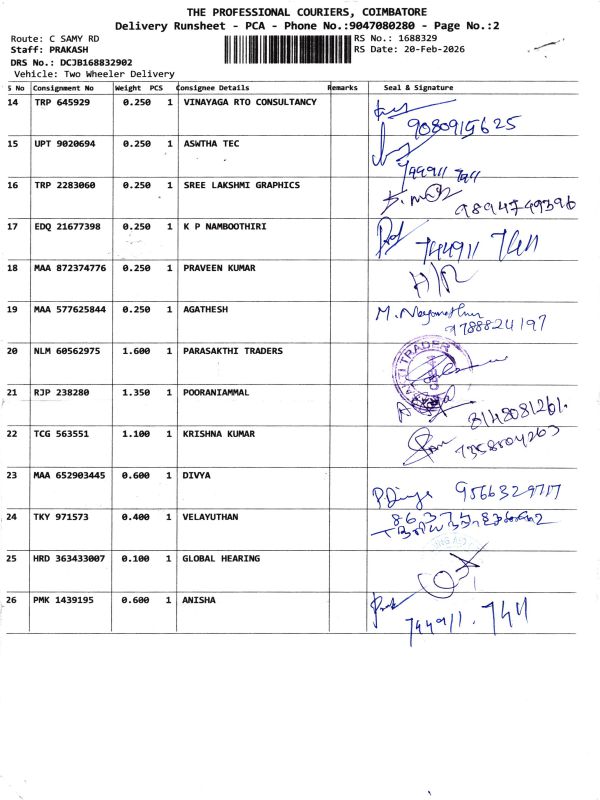 THE PROFESSIONAL COURIERS, COIMBATORE
Delivery Runsheet - PCA - Phone No.:9047080280 - Page No.:2
Route: C SAMY RD RS No.: 1688329
Staff: PRAKASH RS Date: 20-Feb-2026
DRS No.: DCJB168832902
Vehicle: Two Wheeler Delivery
S No Consignment No Weight PCS Consignee Details Remarks Seal & Signature
14 TRP 645929 0.250 1 VINAYAGA RTO CONSULTANCY
9080915625
15 UPT 9020694 0.250 1 ASWTHA TEC
744911 744
16 TRP 2283060 0.250 1 SREE LAKSHMI GRAPHICS
9894749396
17 EDQ 21677398 0.250 1 K P NAMBOOTHIRI
744911 744
18 MAA 872374776 0.250 1 PRAVEEN KUMAR
19 MAA 577625844 0.250 1 AGATHESH M.
9788824197
20 NLM 60562975 1.600 1 PARASAKTHI TRADERS
TRADER
21 RJP 238280 1.350 1 POORANIAMMAL
8148081261.
22 TCG 563551 1.100 1 KRISHNA KUMAR
7358804263
23 MAA 652903445 0.600 1 DIVYA
P. Divya 9566329717
24 TKY 971573 0.400 1 VELAYUTHAN
25 HRD 363433007 0.100 1 GLOBAL HEARING
26 PMK 1439195 0.600 1 ANISHA
744911. 744